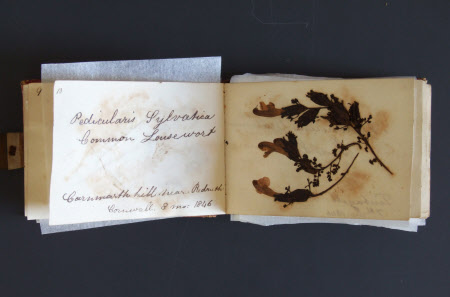 9 10
Pedicularis Sylvatica
Common Lousewort
Carnmarth hill near Redruth
Cornwall 3 mo. 1846